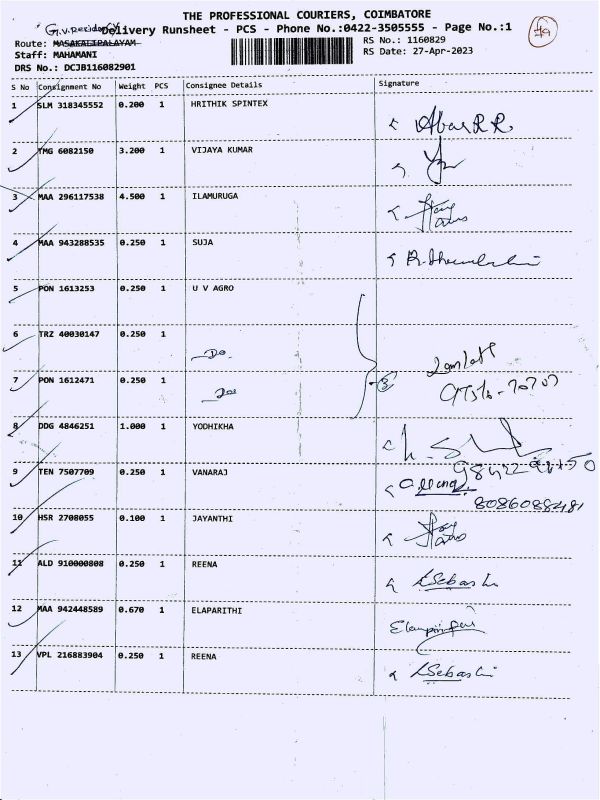 THE PROFESSIONAL COURIERS, COIMBATORE
Delivery Runsheet - PCS - Phone No.:0422-3505555 - Page No.:1
Route: MASAKALIPALAYAM
RS No.: 1160829
Staff: MAHAMANI
RS Date: 27-Apr-2023
DRS No.: DCJB116082901
S No Consignment No Weight PCS Consignee Details Signature
1 SLM 318345552 0.200 1 HRITHIK SPINTEX
2 TMG 6082150 3.200 1 VIJAYA KUMAR
3 MAA 296117538 4.500 1 ILAMURUGA
4 MAA 943288535 0.250 1 SUJA
5 PON 1613253 0.250 1 U V AGRO
6 TRZ 40030147 0.250 1
Do
7 PON 1612471 0.250 1
Do
8 DDG 4846251 1.000 1 YODHIKHA
9 TEN 7507709 0.250 1 VANARAJ
8086088481
10 HSR 2708055 0.100 1 JAYANTHI
11 ALD 910000808 0.250 1 REENA
Sebasti
12 MAA 942448589 0.670 1 ELAPARITHI
13 VPL 216883904 0.250 1 REENA
Sebasti